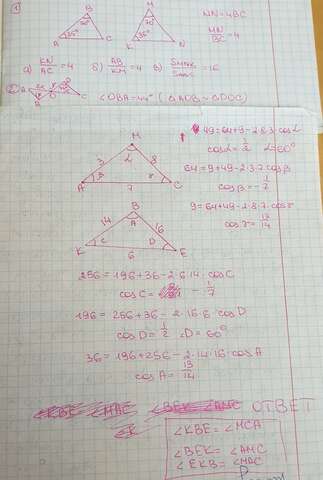 1
B
70°
35°
A C
M
70°
35°
K N
MN = 4BC
MN/BC = 4
а) KN/AC = 4 б) AB/KM = 4 в) SMNK/SABC = 16
2
A C
B
∠OBA = 44° (△AOB ~ △DOC)
M
3 α 8
A β γ C
7
49 = 64+9 - 2·8·3·cosα
cosα = 1/2 α = 60°
64 = 9+49 - 2·3·7 cosβ
cosβ = -1/7
9 = 64+49 - 2·8·7·cosγ
cosγ = 13/14
B
14 A 16
K C D E
6
256 = 196+36 - 2·6·14·cosC
cosC = -1/7
196 = 256+36 - 2·16·6·cosD
cosD = 1/2 ∠D = 60°
36 = 196+256 - 2·14·16·cosA
cosA = 13/14
∠KBE ∠MAC ∠BEK ∠AMC ОТВЕТ
∠KBE = ∠MCA
∠BEK = ∠AMC
∠EKB = ∠MAC